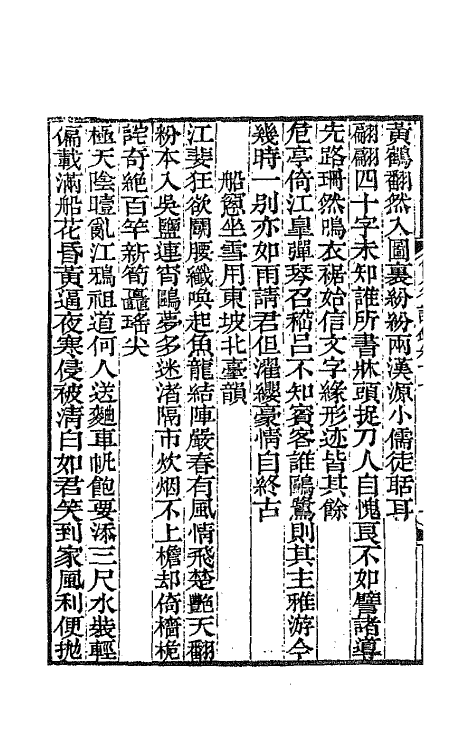 黃鶴翻然入圖裏紛紛兩漢源小儒徒聒耳
翩翩四十字未知誰所書牀頭捉刀人自愧良不如譬諸導
先路珊然鳴衣裾始信文字緣形迹皆其餘
危亭倚江皐彈琴召嵇呂不知賓客誰鷗鷺則其主雅游今
幾時一別亦如雨請君但濯纓豪情自終古
船窻坐雪用東坡北臺韻
江斐狂欲鬭腰纖喚起魚龍結陣嚴春有風情飛楚艷天翻
粉本入吳鹽連宵鷗夢多迷渚隔市炊烟不上檐却倚檣桅
詫奇絶百竿新筍矗瑤尖
極天陰曀亂江鴉祖道何人送麴車帆飽要添三尺水裝輕
偏載滿船花昏黃逼夜寒侵被清白如君笑到家風利便拋